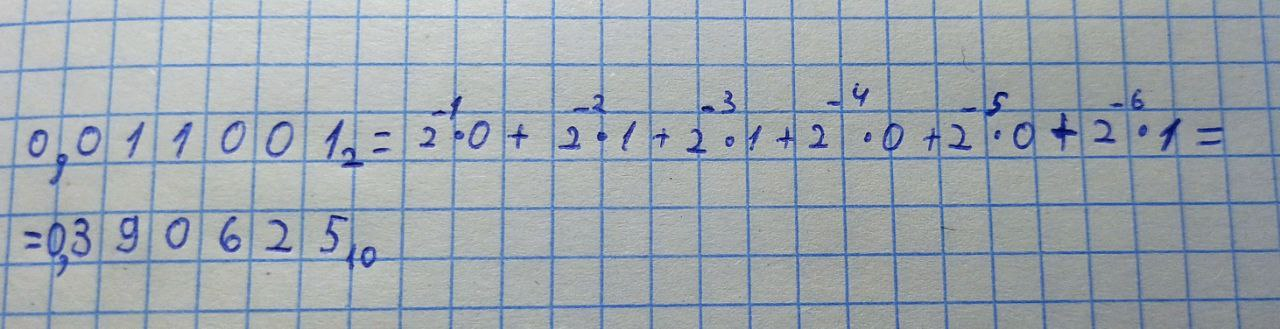 0,011001₂ = 2⁻¹·0 + 2⁻²·1 + 2⁻³·1 + 2⁻⁴·0 + 2⁻⁵·0 + 2⁻⁶·1 =
=0,390625₁₀